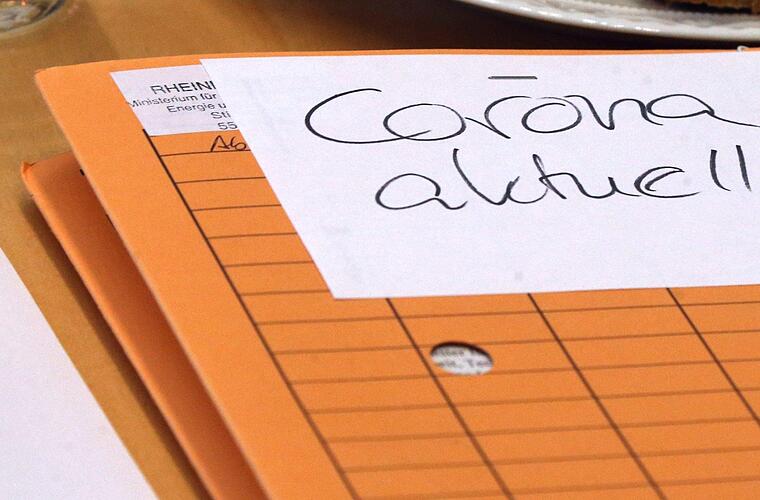 RHEINL
Ministerium für
Energie u
Sti
55
Ab
Corona
aktuell